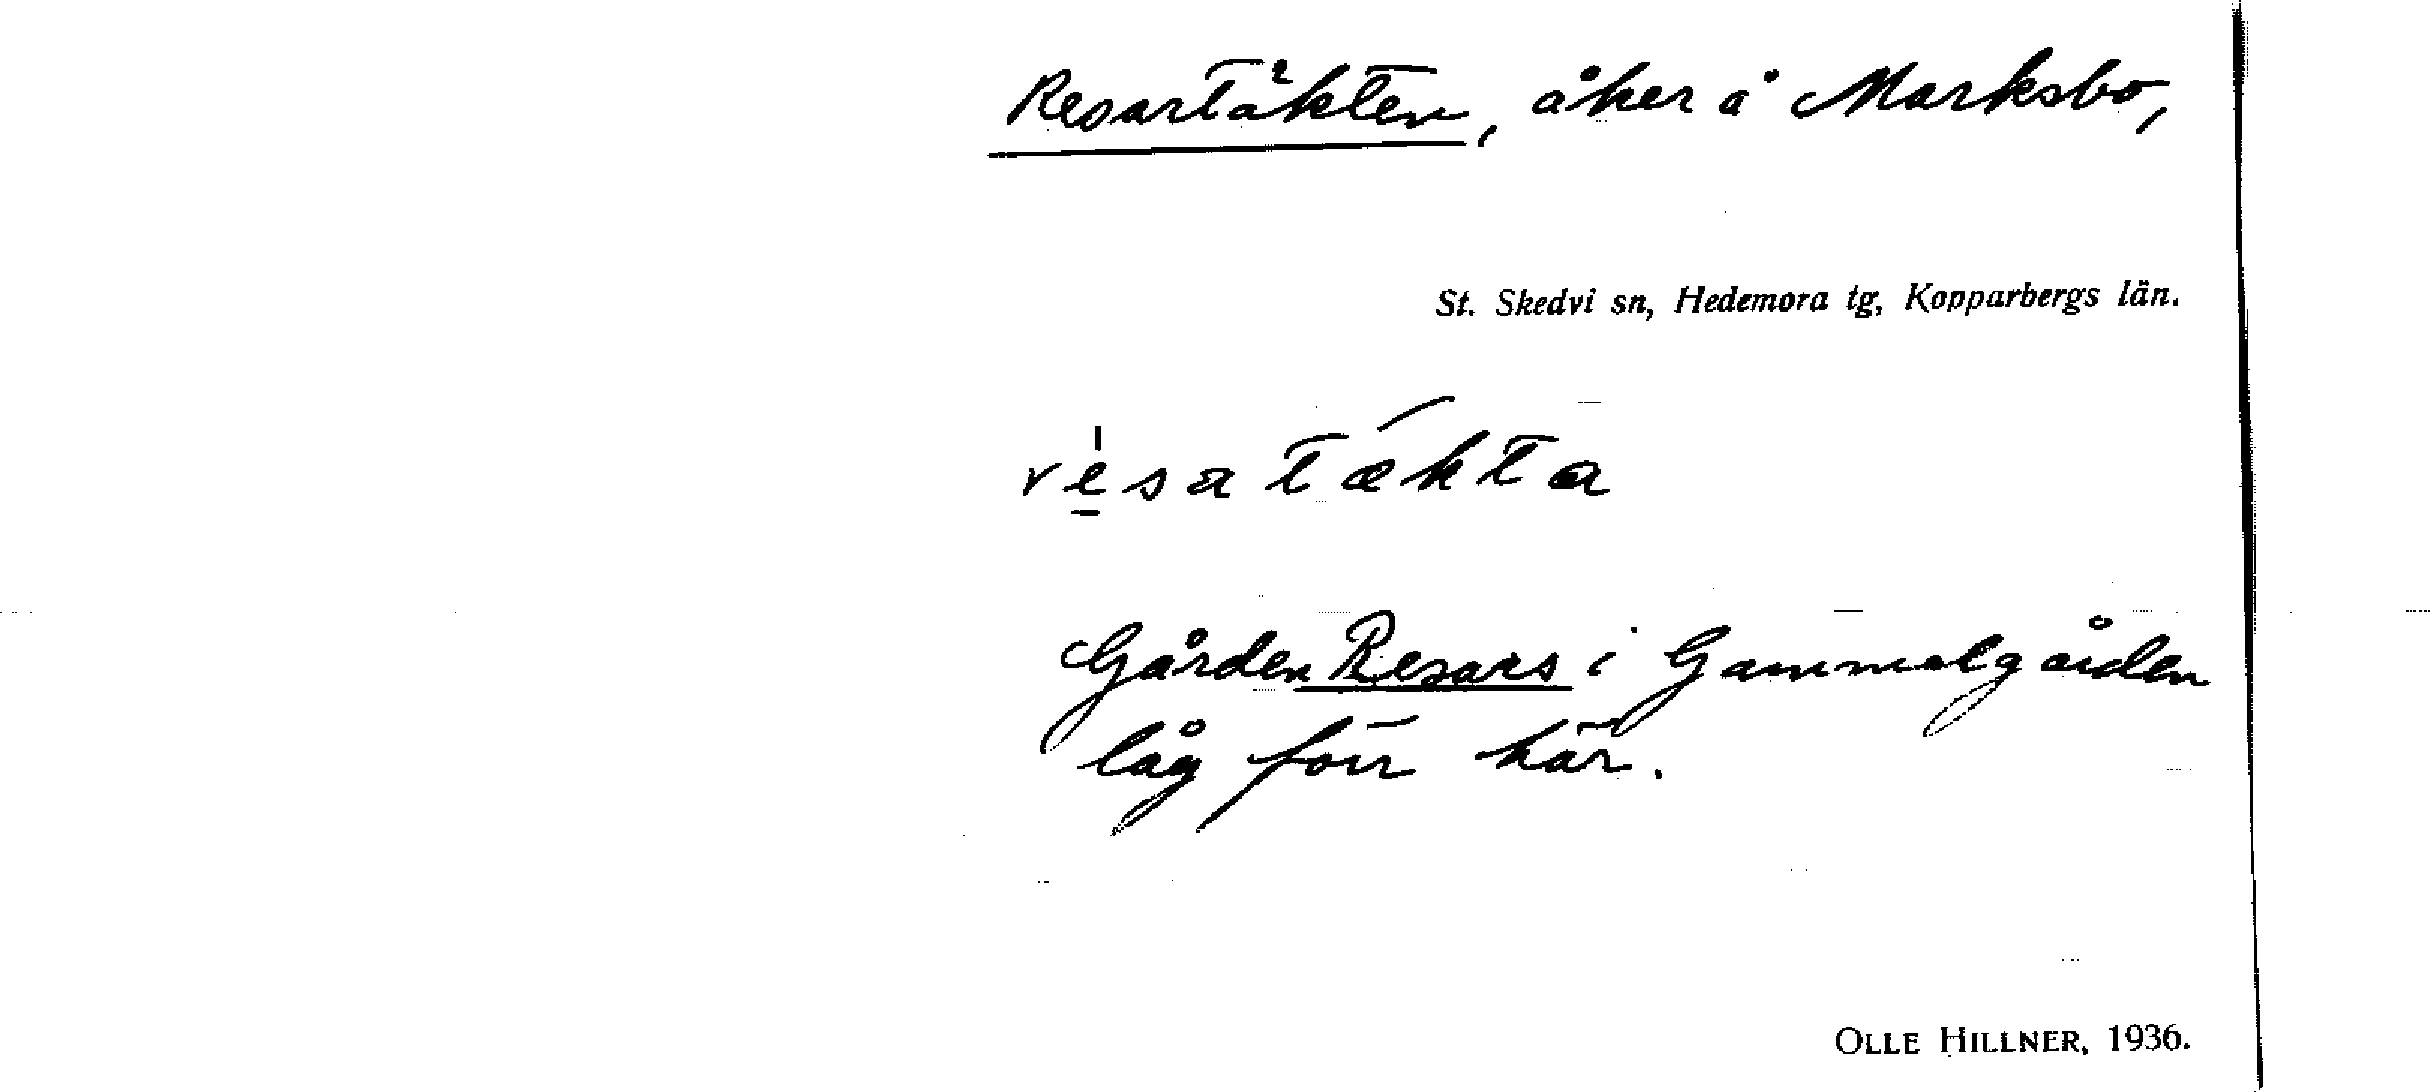 Resartäkten, åker å Marksbo,
St. Skedvi sn, Hedemora tg, Kopparbergs län.
re̱satækta
Gården Resars i Gammelgården
låg förr här.
OLLE HILLNER, 1936.